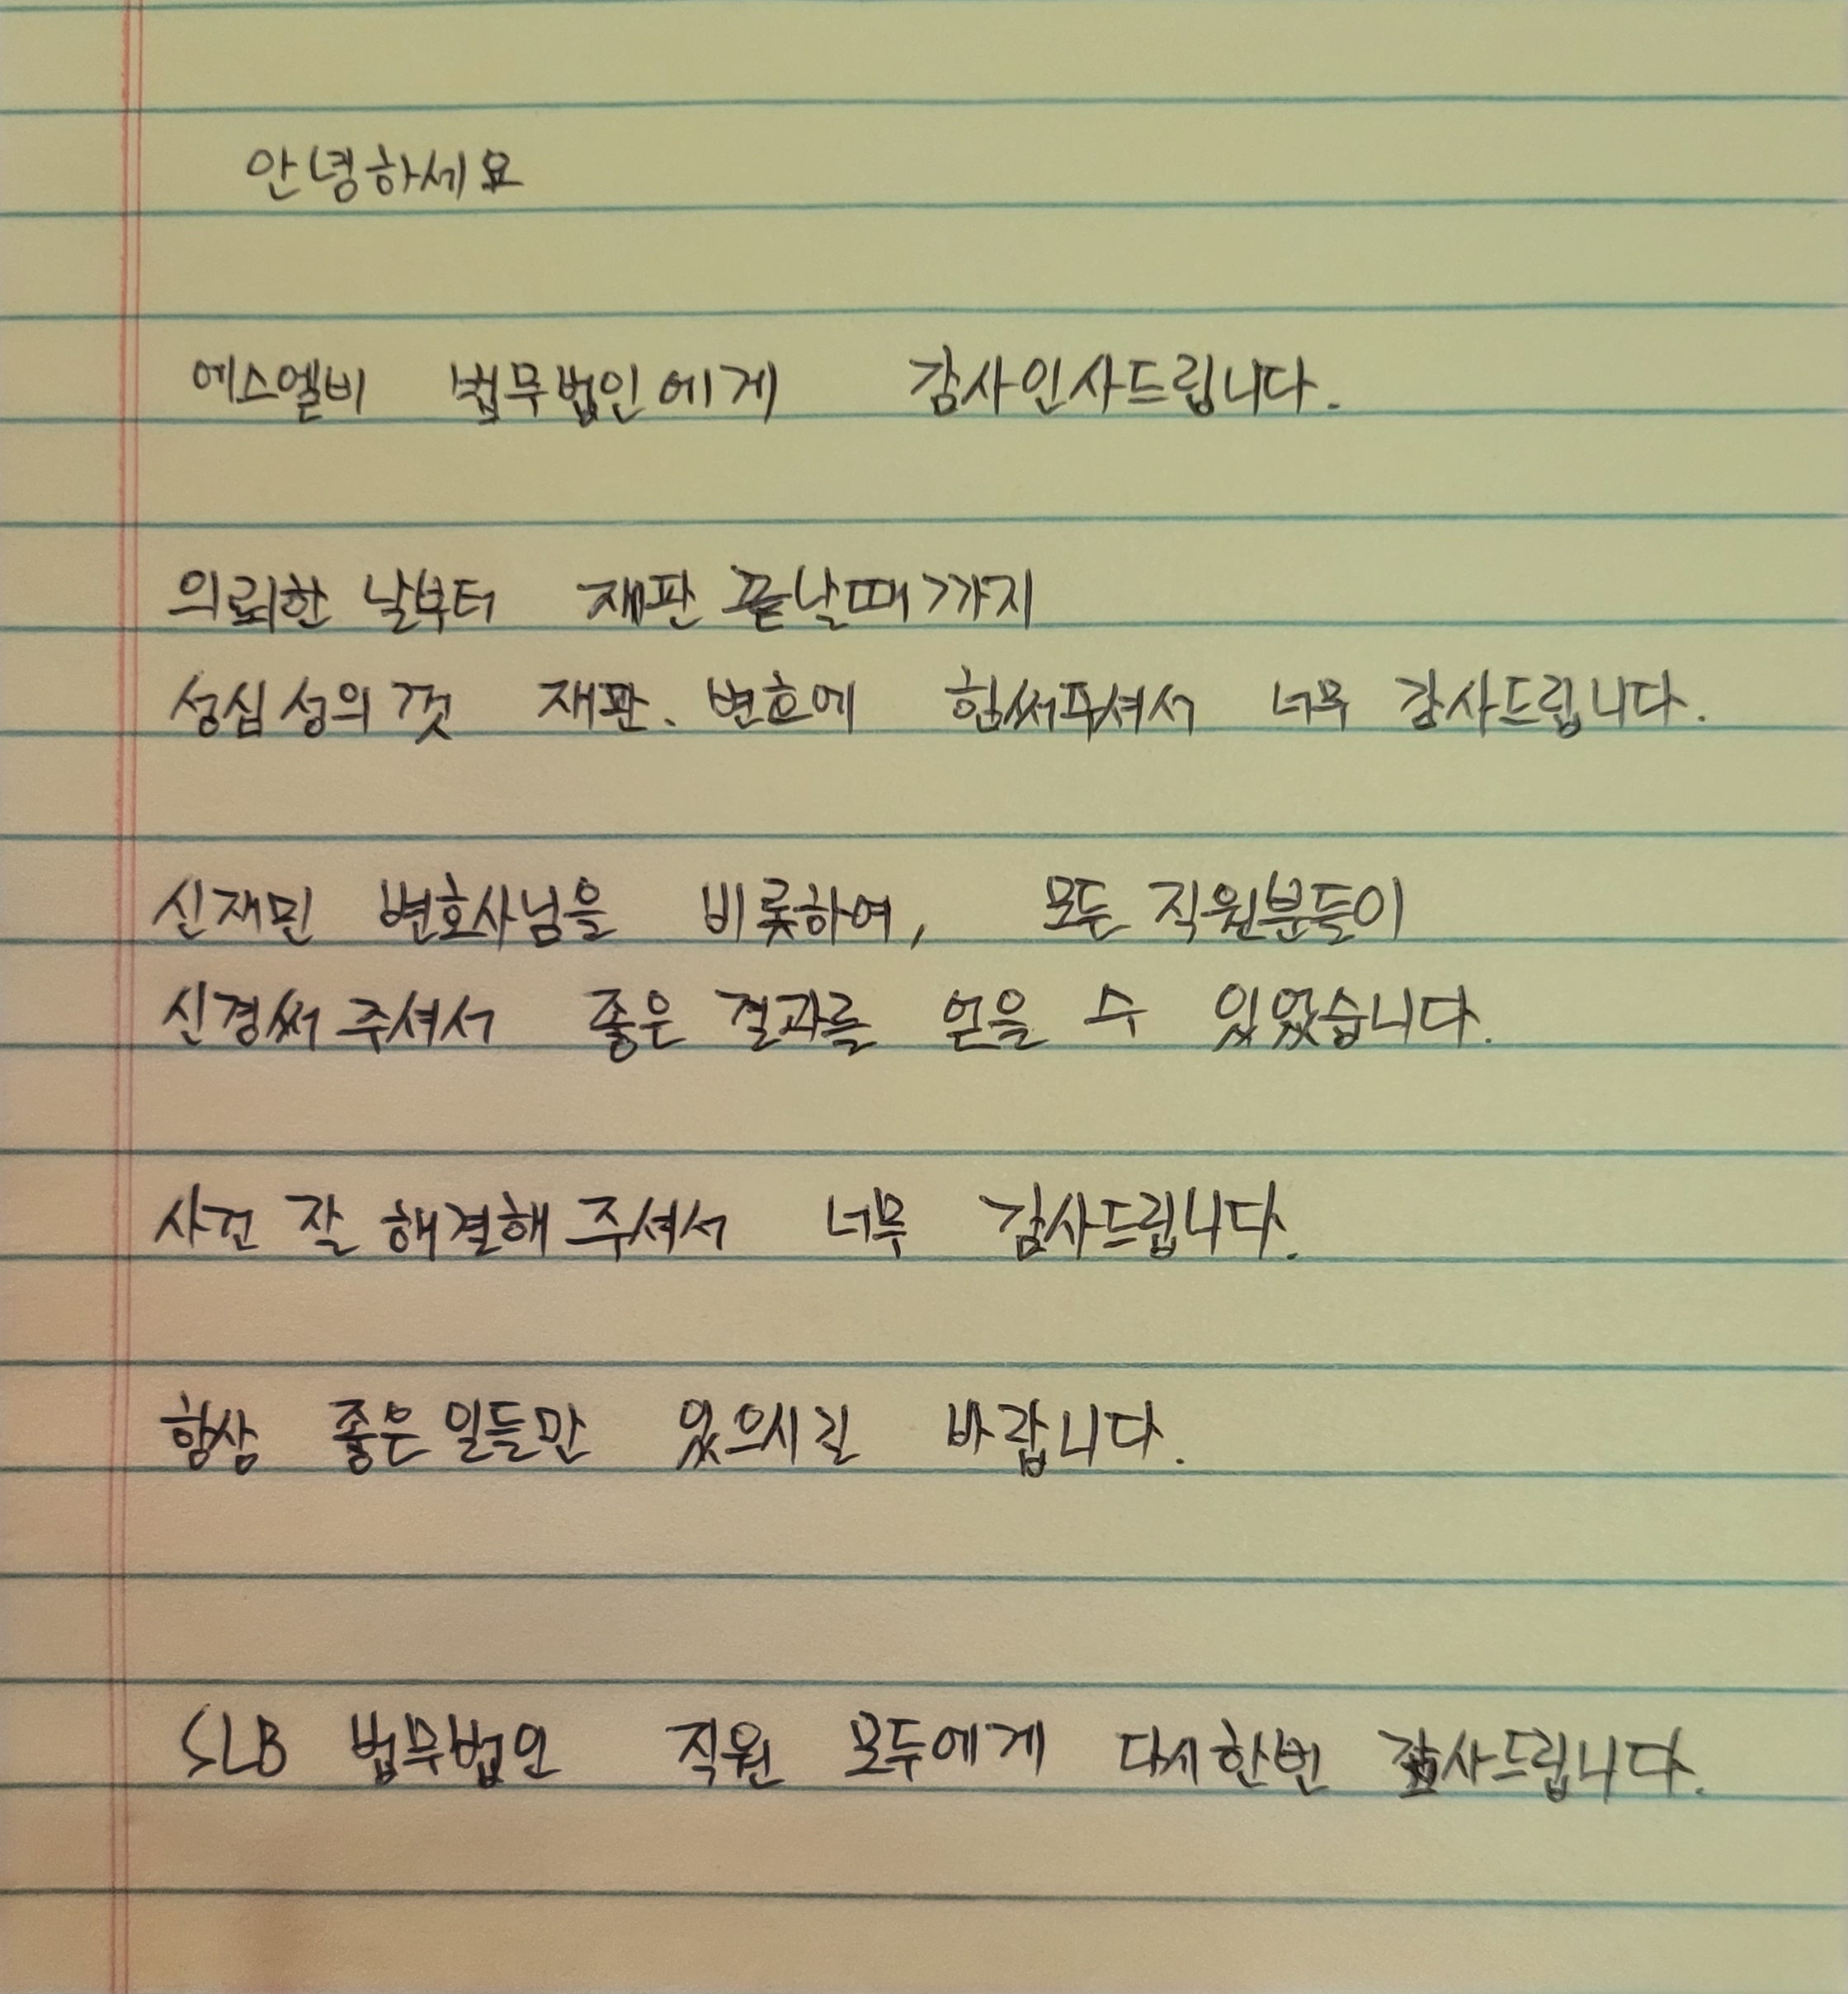 안녕하세요
에스엘비 법무법인에게 감사인사드립니다.
의뢰한 날부터 재판 끝날때까지
성심성의껏 재판. 변호에 힘써주셔서 너무 감사드립니다.
신재민 변호사님을 비롯하여, 모두 직원분들이
신경써 주셔서 좋은 결과를 얻을 수 있었습니다.
사건 잘 해결해 주셔서 너무 감사드립니다.
항상 좋은일들만 있으시길 바랍니다.
SLB 법무법인 직원 모두에게 다시한번 감사드립니다.